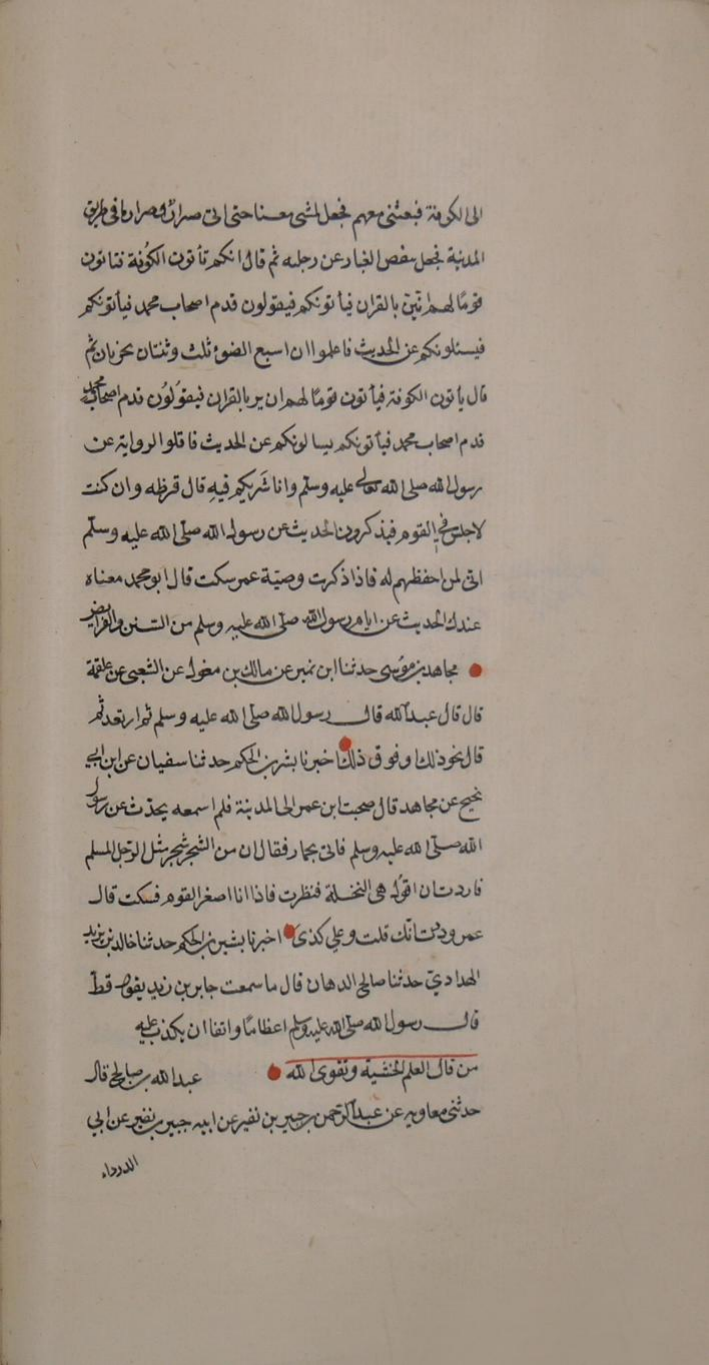 الى الكوفة فبعثنى معهم فجعل يمشى معنا حتى اتى صرار وصرار ماء فى طريق
المدينة فجعل ينفض الغبار عن رجليه ثم قال انكم تأتون الكوفة فتاتون
قوما لهم ازيز بالقران فيأتونكم فيقولون قدم اصحاب محمد فيأتونكم
فيسئلونكم عن الحديث فاعلموا ان اسبغ الضوء ثلث وثنتان يجزيان ثم
قال يأتون الكوفة فيأتون قوما لهم ازيز بالقران فيقولون قدم اصحاب محمد
قدم اصحاب محمد فيأتونكم يسالونكم عن الحديث فاقلوا الرواية عن
رسول الله صلى الله تعالى عليه وسلم وانا شريككم فيه قال قرظه وان كنت
لاجلس فى القوم فيذكرون الحديث عن رسول الله صلى الله عليه وسلم
انى لمن احفظهم له فاذا ذكرت وصية عمر سكت قال ابو محمد معناه
عندك الحديث عن ايام رسول الله صلى الله عليه وسلم من السنن والفرايض
مجاهد بن موسى حدثنا ابن نمير عن مالك بن مغول عن الشعبى عن علقمة
قال قال عبد الله قال رسول الله صلى الله عليه وسلم ثم ارتعد ثم
قال نحو ذلك او فوق ذلك اخبرنا بشر بن الحكم حدثنا سفيان عن ابن ابي
نجيح عن مجاهد قال صحبت ابن عمر الى المدينة فلم اسمعه يحدث عن رسول
الله صلى الله عليه وسلم فاتى بجمار فقال ان من الشجر شجر مثل الرجل المسلم
فاردت ان اقول هى النخلة فنظرت فاذا انا اصغر القوم فسكت قال
عمر وددت انك قلت وعلي كذى اخبرنا بشير بن الحكم حدثنا خالد بن يزيد
الهدادي حدثنا صالح الدهان قال ما سمعت جابر بن زيد يقول قط
قال رسول الله صلى الله عليه وسلم اعظاما واتقا ان يكذب عليه
من قال العلم الخشية وتقوى الله عبد الله بن صالح قال
حدثنى معاوية عن عبد الرحمن بن جبير بن نفير عن ابيه جبير بن نفير عن ابي
الدرداء